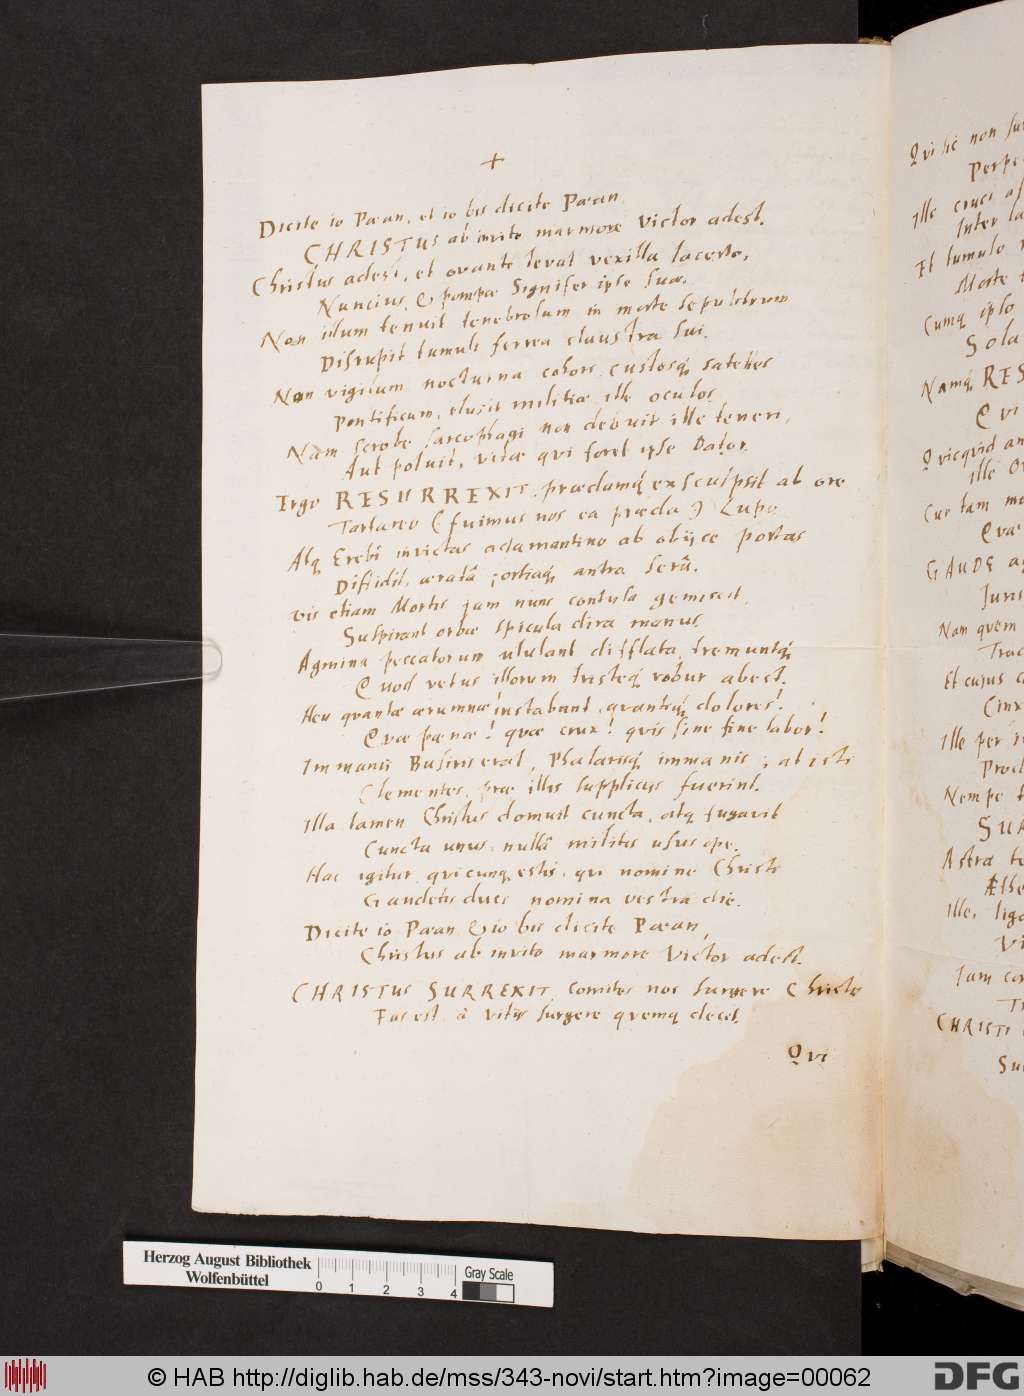 +
Dicite io Pæan, et io bis dicite Pæan,
CHRISTUS ab invito marmore Victor adest.
Christus adest, et ovante levat vexilla lacerto,
Nuncius, & pompæ Signifer ipse suæ.
Non illum tenuit tenebrosum in morte sepulchrum
Disrupit tumuli ferrea claustra sui.
Non vigilum nocturna cohors, custosq; satelles
Pontificum, elusit militiæ ille oculos.
Nam scrobe sarcophagi non debuit ille teneri,
Aut potuit, vitæ qui foret ipse Dator.
Ergo RESURREXIT, prædamq; exsculpsit ab ore
Tartareo (fuimus nos ea præda) Lupo
Atq; Erebi invictas adamantino ab obijce portas
Diffidit, æratâ antra serâ.
vis etiam Mortis jam nunc contusa gemiscit,
Suspirant orbæ spicula dira manus.
Agmina peccatorum ululant difflata, tremuntq;
Quod vetus illorum tristeq; robur abest.
Heu quantæ ærumnæ instabant, quantiq; dolores!
Quæ pænæ! quæ crux! quis sine fine labor!
Immanis Busiris erat, Phalarisq; immanis; at isti
Clementes, præ illis supplicijs fuerint.
Illa tamen Christus domuit cuncta, atq; fugavit
Cuncta unus, nullâ militis usus ope.
Hac igitur, quicunq; estis, qui nomine Christi
Gaudetis duci nomina vestra die.
Dicite io Pæan, & io bis dicite Pæan,
Christus ab invito marmore Victor adest.
CHRISTUS SURREXIT, comites nos surgere Christo
Fas est, à vitijs surgere quemq; decet.
Qvi
Qvi sic non
Ille cruci
Inter
Et tumulo
Morte
Cumq; ipso
Sola
Namq; RES
Qvi
Qvicqvid
ille
Cur tam
Quæ
GAUDE
Juris
Nam quem
Et cujus
Cinx
Ille per
Nempe
SUR
Astra
Æthe
Ille,
Jam
CHRISTI
Herzog August Bibliothek
Wolfenbüttel
0 1 2 3 4
Gray Scale
© HAB http://diglib.hab.de/mss/343-novi/start.htm?image=00062
DFG